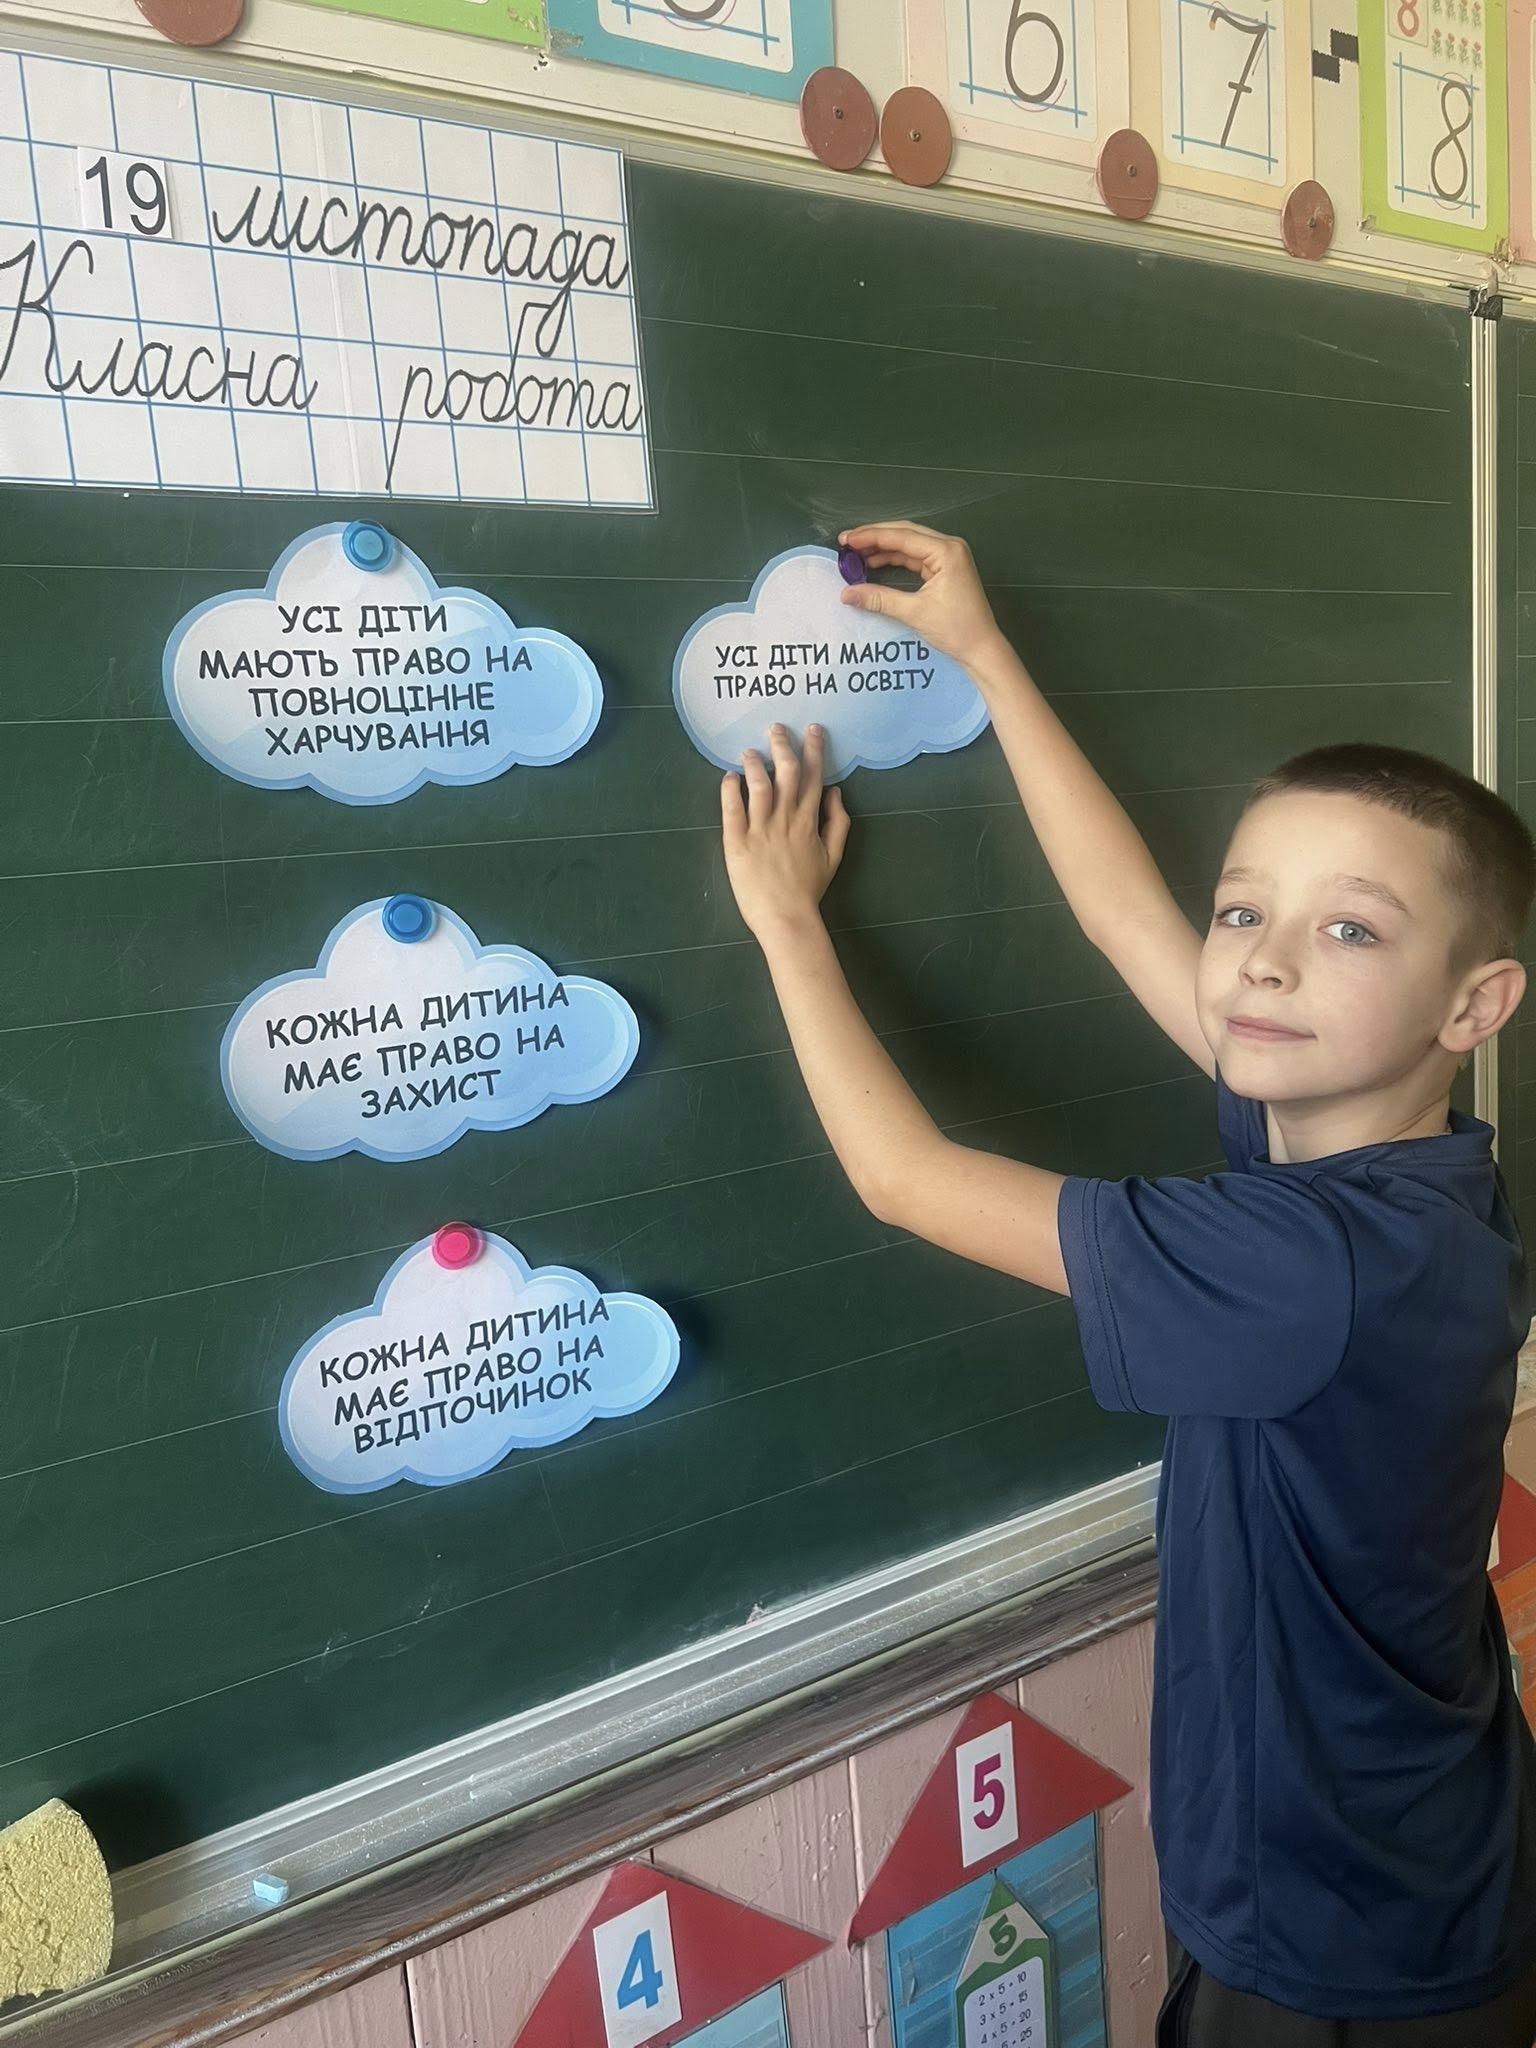 6
7
8
8
19 листопада
Класна робота
УСІ ДІТИ
МАЮТЬ ПРАВО НА
ПОВНОЦІННЕ
ХАРЧУВАННЯ
УСІ ДІТИ МАЮТЬ
ПРАВО НА ОСВІТУ
КОЖНА ДИТИНА
МАЄ ПРАВО НА
ЗАХИСТ
КОЖНА ДИТИНА
МАЄ ПРАВО НА
ВІДПОЧИНОК
5
4
5
2 x 5 = 10
3 x 5 = 15
4 x 5 = 20
x 5 = 25